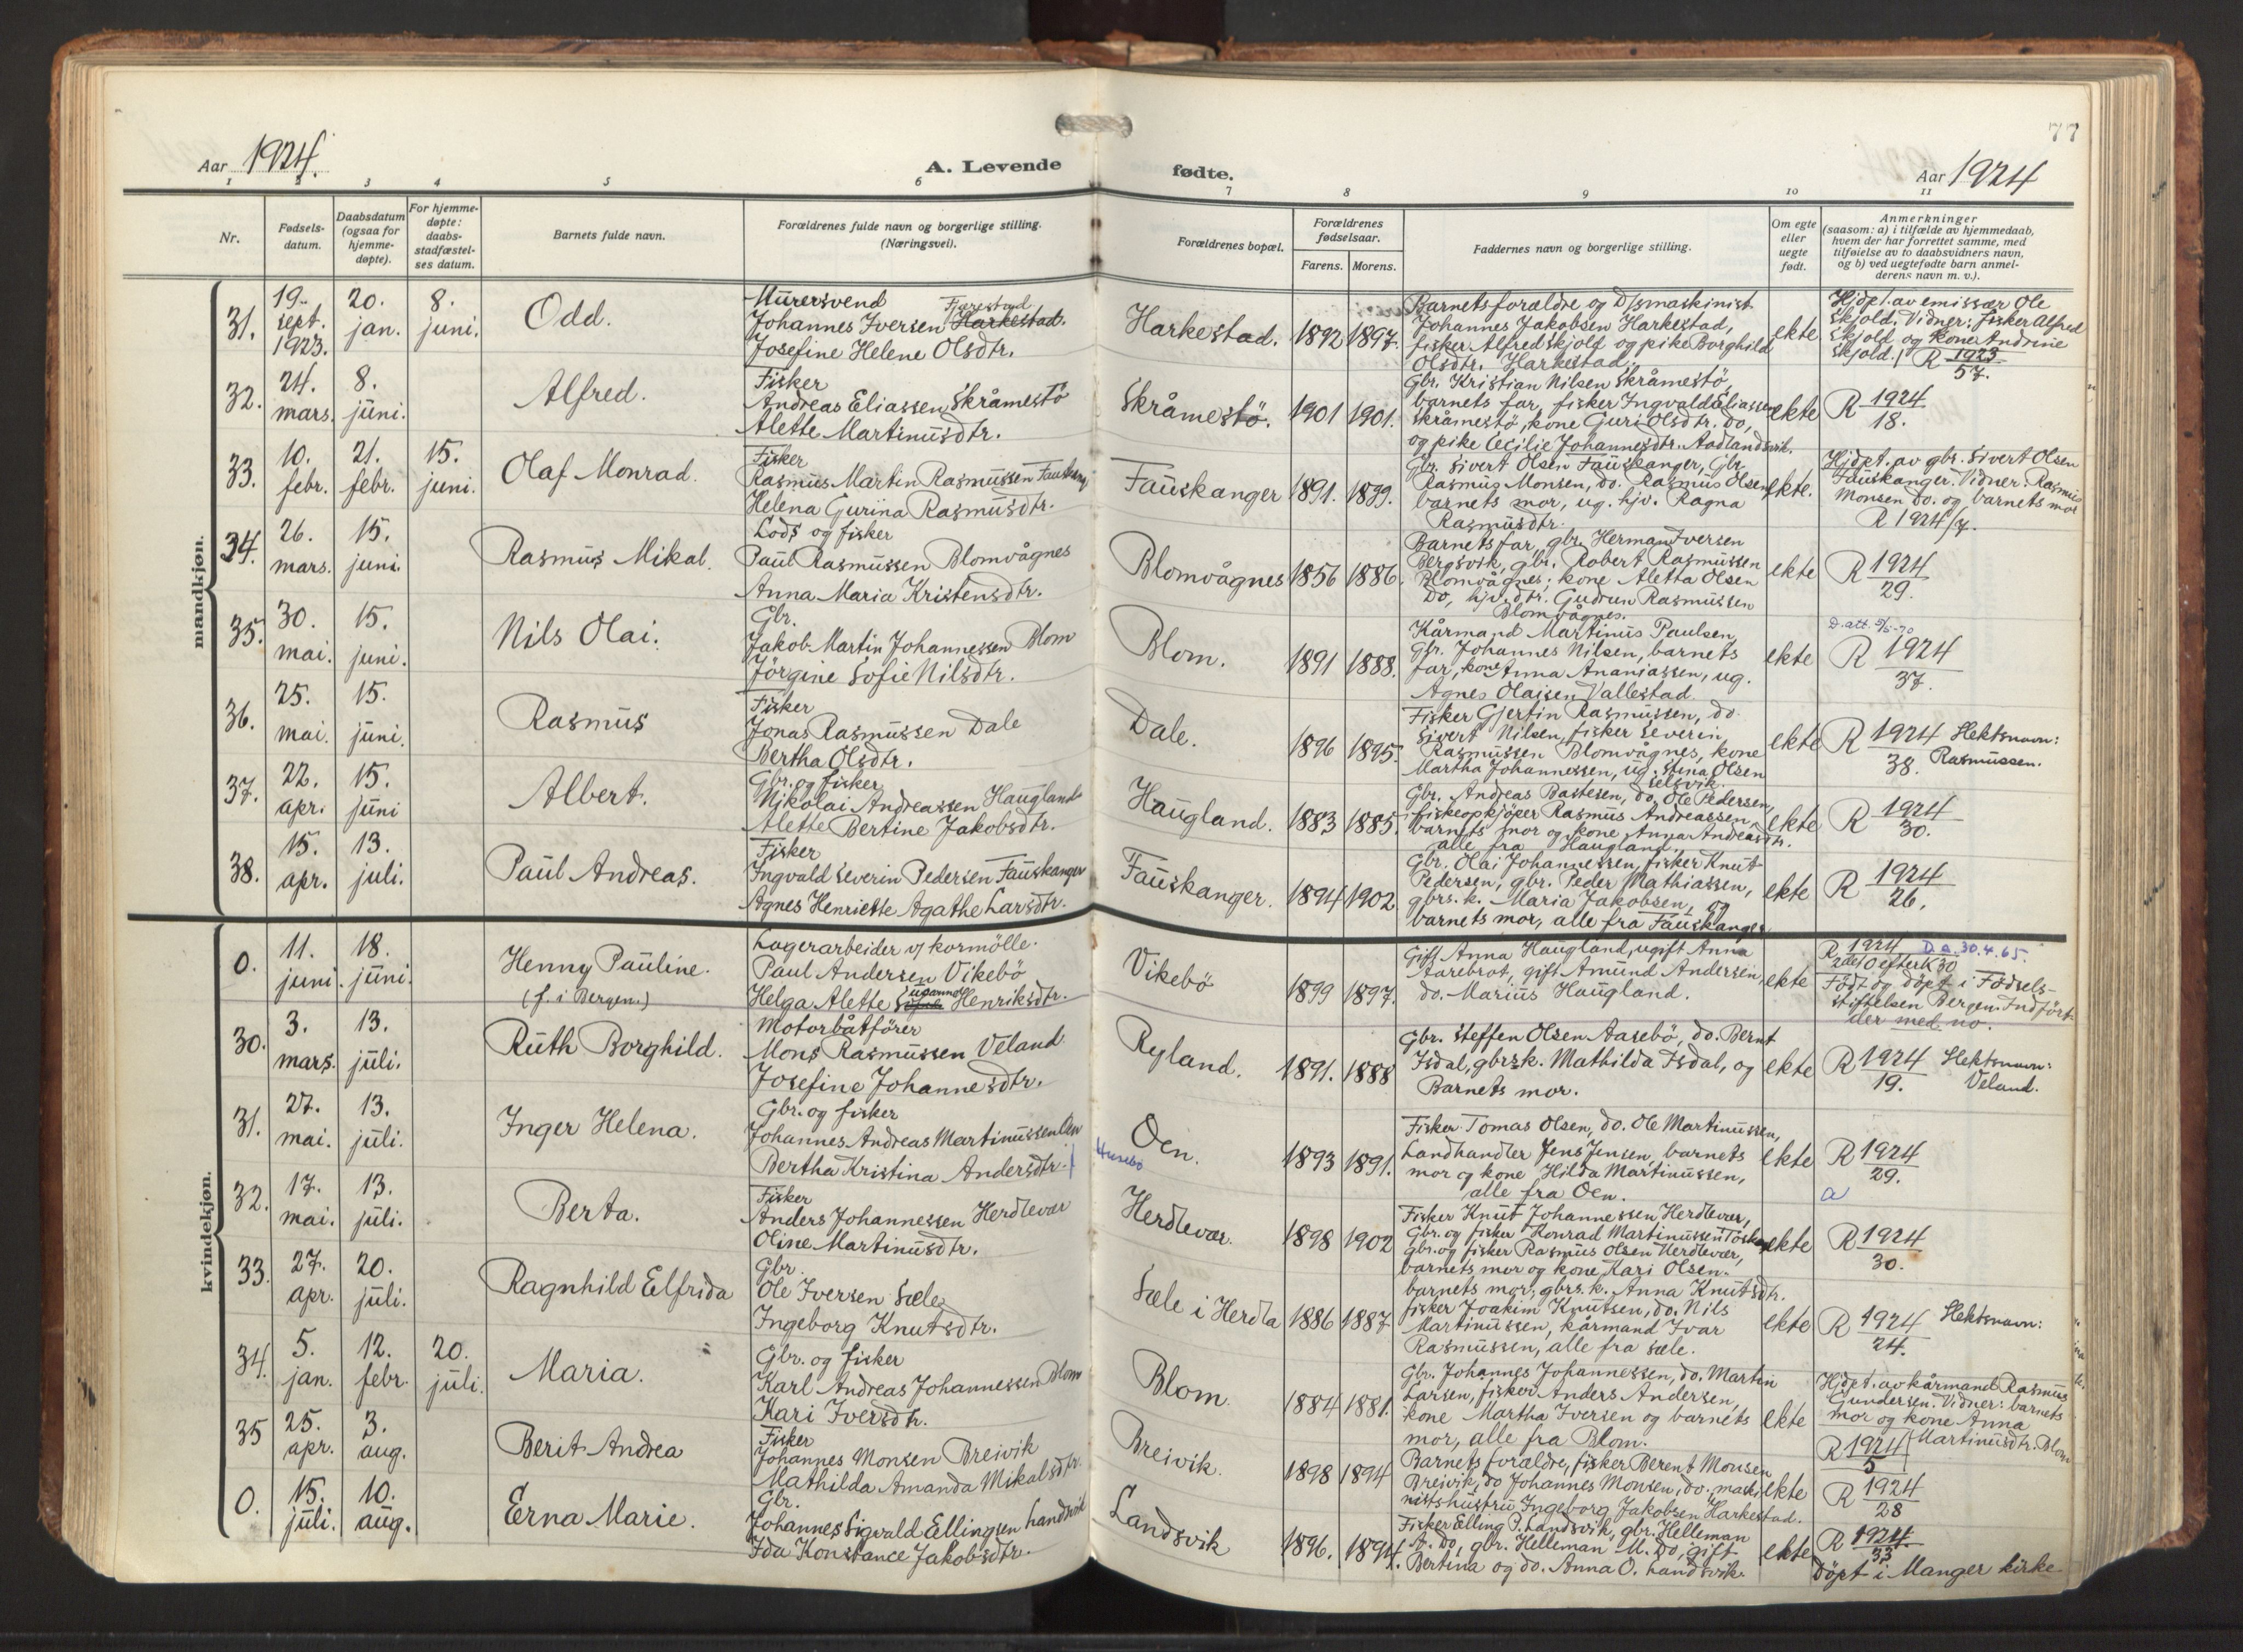 77
Aar 1924.
A. Levende
fødte.
Aar 1924
1 2 3 4 5 6 7 8 9 10 11
Nr.
Fødsels-
datum.
Daabsdatum
(ogsaa for
hjemme-
døpte).
For hjemme-
døpte:
daabs-
stadfæstel-
ses datum.
Barnets fulde navn.
Forældrenes fulde navn og borgerlige stilling.
(Næringsvei).
Forældrenes bopæl.
Forældrenes
fødselsaar.
Farens. Morens.
Faddernes navn og borgerlige stilling.
Om egte
eller
uegte
født.
Anmerkninger
(saasom: a) i tilfælde av hjemmedaab,
hvem der har forrettet samme, med
tilføielse av to daabsvidners navn,
og b) ved uegtefødte barn anmel-
derens navn m. v.).
mandkjøn.
31.
19.
sept.
1923.
20.
jan.
8.
juni.
Odd.
Murersvend
Fjærestad
Johannes Iversen Harkestad.
Josefine Helene Olsdtr.
Harkestad.
1892
1897.
Barnets forældre og D/smaskinist
Johannes Jakobsen Harkestad,
fisker Alfred Skjold og pike Borghild
Olsdtr. Harkestad.
ekte
Hjdpt. av emissær Ole
Skjold. Vidner: fisker Alfred
Skjold og kone Andrine
Skjold. R 1923
57.
32.
24.
mars.
8.
juni.
Alfred.
Fisker
Andreas Eliassen Skråmestö
Alette Martinusdtr.
Skråmestö.
1901
1901.
Gbr. Kristian Nilsen Skråmestö,
barnets far, fisker Ingvald Eliassen
Skråmestö, kone Guri Olsdtr. do,
og pike Cecilie Johannesdtr. Aadlandsvik.
ekte
R 1924
18.
33.
10.
febr.
21.
febr.
15.
juni.
Olaf Monrad.
Fisker
Rasmus Martin Rasmussen Fauskang
Helena Gurina Rasmusdtr.
Fauskanger
1891.
1899.
Gbr. Sivert Olsen Fauskanger, Gbr.
Rasmus Monsen, do. Rasmus Olsen
barnets mor, ug. hjv. Ragna
Rasmusdtr.
ekte.
Hjdpt. av gbr. Sivert Olsen
Fauskanger. Vidner: Rasmus
Monsen do. og barnets mor
R 1924/7.
34.
26.
mars.
15.
juni.
Rasmus Mikal.
Lods og fisker
Paul Rasmussen Blomvågnes
Anna Maria Kristensdtr.
Blomvågnes
1856
1886.
Barnets far, gbr. Herman Iversen
Bergsvik, gbr. Robert Rasmussen
Blomvågnes; kone Aletta Olsen
Do, hjv. dtr. Gudrun Rasmussen
Blomvågnes.
ekte
R 1924
29.
35.
30.
mai.
15.
juni.
Nils Olai.
Gbr.
Jakob Martin Johannessen Blom
Jörgine Sofie Nilsdtr.
Blom.
1891
1888.
Kårmand Martinus Paulsen,
Gbr. Johannes Nilsen, barnets
far, kone Anna Ananiassen, ug.
Agnes Olaisen Vallestad.
ekte
R 1924
37.
36.
25.
mai.
15.
juni.
Rasmus
Fisker
Jonas Rasmussen Dale
Bertha Olsdtr.
Dale.
1896
1895.
Fisker Gjertin Rasmussen, do.
Sivert Nilsen, fisker Severin
Rasmussen Blomvågnes, kone
Martha Johannessen, ug. Stina Olsen
Selsvik.
ekte
R 1924
38.
Slektsnavn:
Rasmussen.
37.
22.
apr.
15.
juni
Albert.
Gbr. og fisker
Nikolai Andreassen Haugland
Alette Bertine Jakobsdtr.
Haugland.
1883
1885.
Gbr. Andreas Bastesen, do. Ole Pedersen,
fiskeopkjöper Rasmus Andreassen,
barnets mor og kone Anna Andreasdtr.
alle fra Haugland.
ekte
R 1924
30.
38.
15.
apr.
13.
juli.
Paul Andreas.
Fisker
Ingvald Severin Pedersen Fauskanger
Agnes Henriette Agathe Larsdtr.
Fauskanger.
1894
1902
Gbr. Olai Johannessen, fisker Knut
Pedersen, gbr. Peder Mathiassen,
gbrs. k. Maria Jakobsen, og
barnets mor, alle fra Fauskanger
ekte
R 1924
26.
kvindekjøn.
0.
11.
juni.
18.
juni.
Henny Pauline.
(f. i Bergen.)
Lagerarbeider v/ kornmölle.
Paul Andersen Vikebö
Helga Alette Henriksdtr.
Vikebö
1899
1897.
Gift Anna Haugland, ugift Anna
Aarebrot, gift Amund Andersen,
do. Marius Haugland.
ekte
R 1924 D.a. 30.4.65.
2det 0 efter K 30
Födt og döpt i Födsels-
stiftelsen Bergen. Indfört
der med no.
30.
3.
mars.
13.
juli.
Ruth Borghild.
Motorbåtförer
Mons Rasmussen Veland
Josefine Johannesdtr.
Ryland.
1891.
1888
Gbr. Steffen Olsen Aasebö, do. Bernt
Isdal, gbrsk. Mathilda Isdal, og
Barnets mor.
ekte
R 1924
19.
Slektsnavn:
Veland.
31.
27.
mai.
13.
juli.
Inger Helena.
Gbr. og fisker
Johannes Andreas Martinussen Oen
Bertha Kristina Andersdtr.
Husebö
Oen.
1893
1891.
Fisker Tomas Olsen, do. Ole Martinussen,
Landhandler Jens Jensen, barnets
mor og kone Hilda Martinussen,
alle fra Oen.
ekte
R 1924
29.
a
32.
17.
mai.
13.
juli.
Berta.
Fisker
Anders Johannessen Herdlevær
Oline Martinusdtr.
Herdlevær.
1898
1902
Fisker Knut Johannessen Herdlevær,
Gbr. og fisker Konrad Martinussen
gbr. og fisker Rasmus Olsen Herdlevær,
barnets mor og kone Kari Olsen.
ekte
R 1924
30.
33.
27.
apr.
20.
juli.
Ragnhild Elfrida
Gbr.
Ole Iversen Sæle
Ingeborg Knutsdtr.
Sæle i Herdla
1886
1887
barnets mor, gbrs. k. Anna Knutsdtr.
fisker Joakim Knutsen, do. Nils
Martinussen, kårmand Ivar
Rasmussen, alle fra Sæle.
ekte
R 1924
24.
Slektsnavn:
34.
5.
jan.
12.
febr.
20.
juli.
Maria.
Gbr. og fisker
Karl Andreas Johannessen Blom
Kari Iversdtr.
Blom.
1884
1881.
Gbr. Johannes Johannessen, do. Martin
Larsen, fisker Anders Andersen,
kone Martha Iversen og barnets
mor, alle fra Blom.
ekte
Hjdpt. av kårmand Rasmus
Gundersen. Vidner: barnets
mor og kone Anna
Martinusdtr. Blom
R 1924
5
35
25.
apr.
3.
aug.
Berit Andrea
Fisker
Johannes Monsen Breivik
Mathilda Amanda Mikalsdtr.
Breivik.
1898
1894
Barnets forældre, fisker Berent Monsen
Breivik, do Johannes Monsen, do., maski-
nistshustru Ingeborg Jakobsen Harkestad.
ekte
R 1924
28
0.
15.
juli.
10.
aug.
Erna Marie.
Gbr.
Johannes Sigvald Ellingsen Landsvik
Ida Konstance Jakobsdtr.
Landsvik
1896.
1894.
Fisker Elling P. Landsvik, gbr. Helleman
A. Do, gbr. Helleman M. Do, gift
Bertina og do. Anna O. Landsvik.
ekte
R 1924.
33
Döpt i Manger kirke